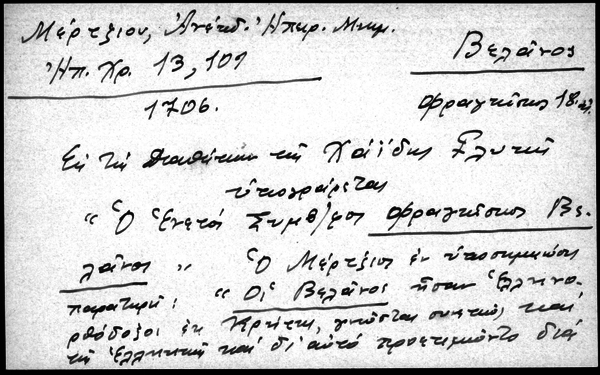 Μέρτζιου, Ἀνέκδ. Ἠπειρ. Μνημ.
Ἠπ. Χρ. 13, 101
Βελᾶνος
1706.
Φραγκῖσκος 18
Εἰς τὴν διαθήκην τῆς Χάϊδης
ὑπογράφεται
" Ὁ Ἑνετὸς Συμβ/φος Φραγκῖσκος Βε-
λᾶνος " Ὁ Μέρτζιος ἐν ὑποσημειώσει
παρατηρεῖ: " Οἱ Βελᾶνος ἦσαν Ἑλληνο-
ρθόδοξοι ἐκ Κρήτης, γνῶσται συνεπῶς καὶ
τῆς Ἑλληνικῆς καὶ δι' αὐτὸ προετιμῶντο διὰ